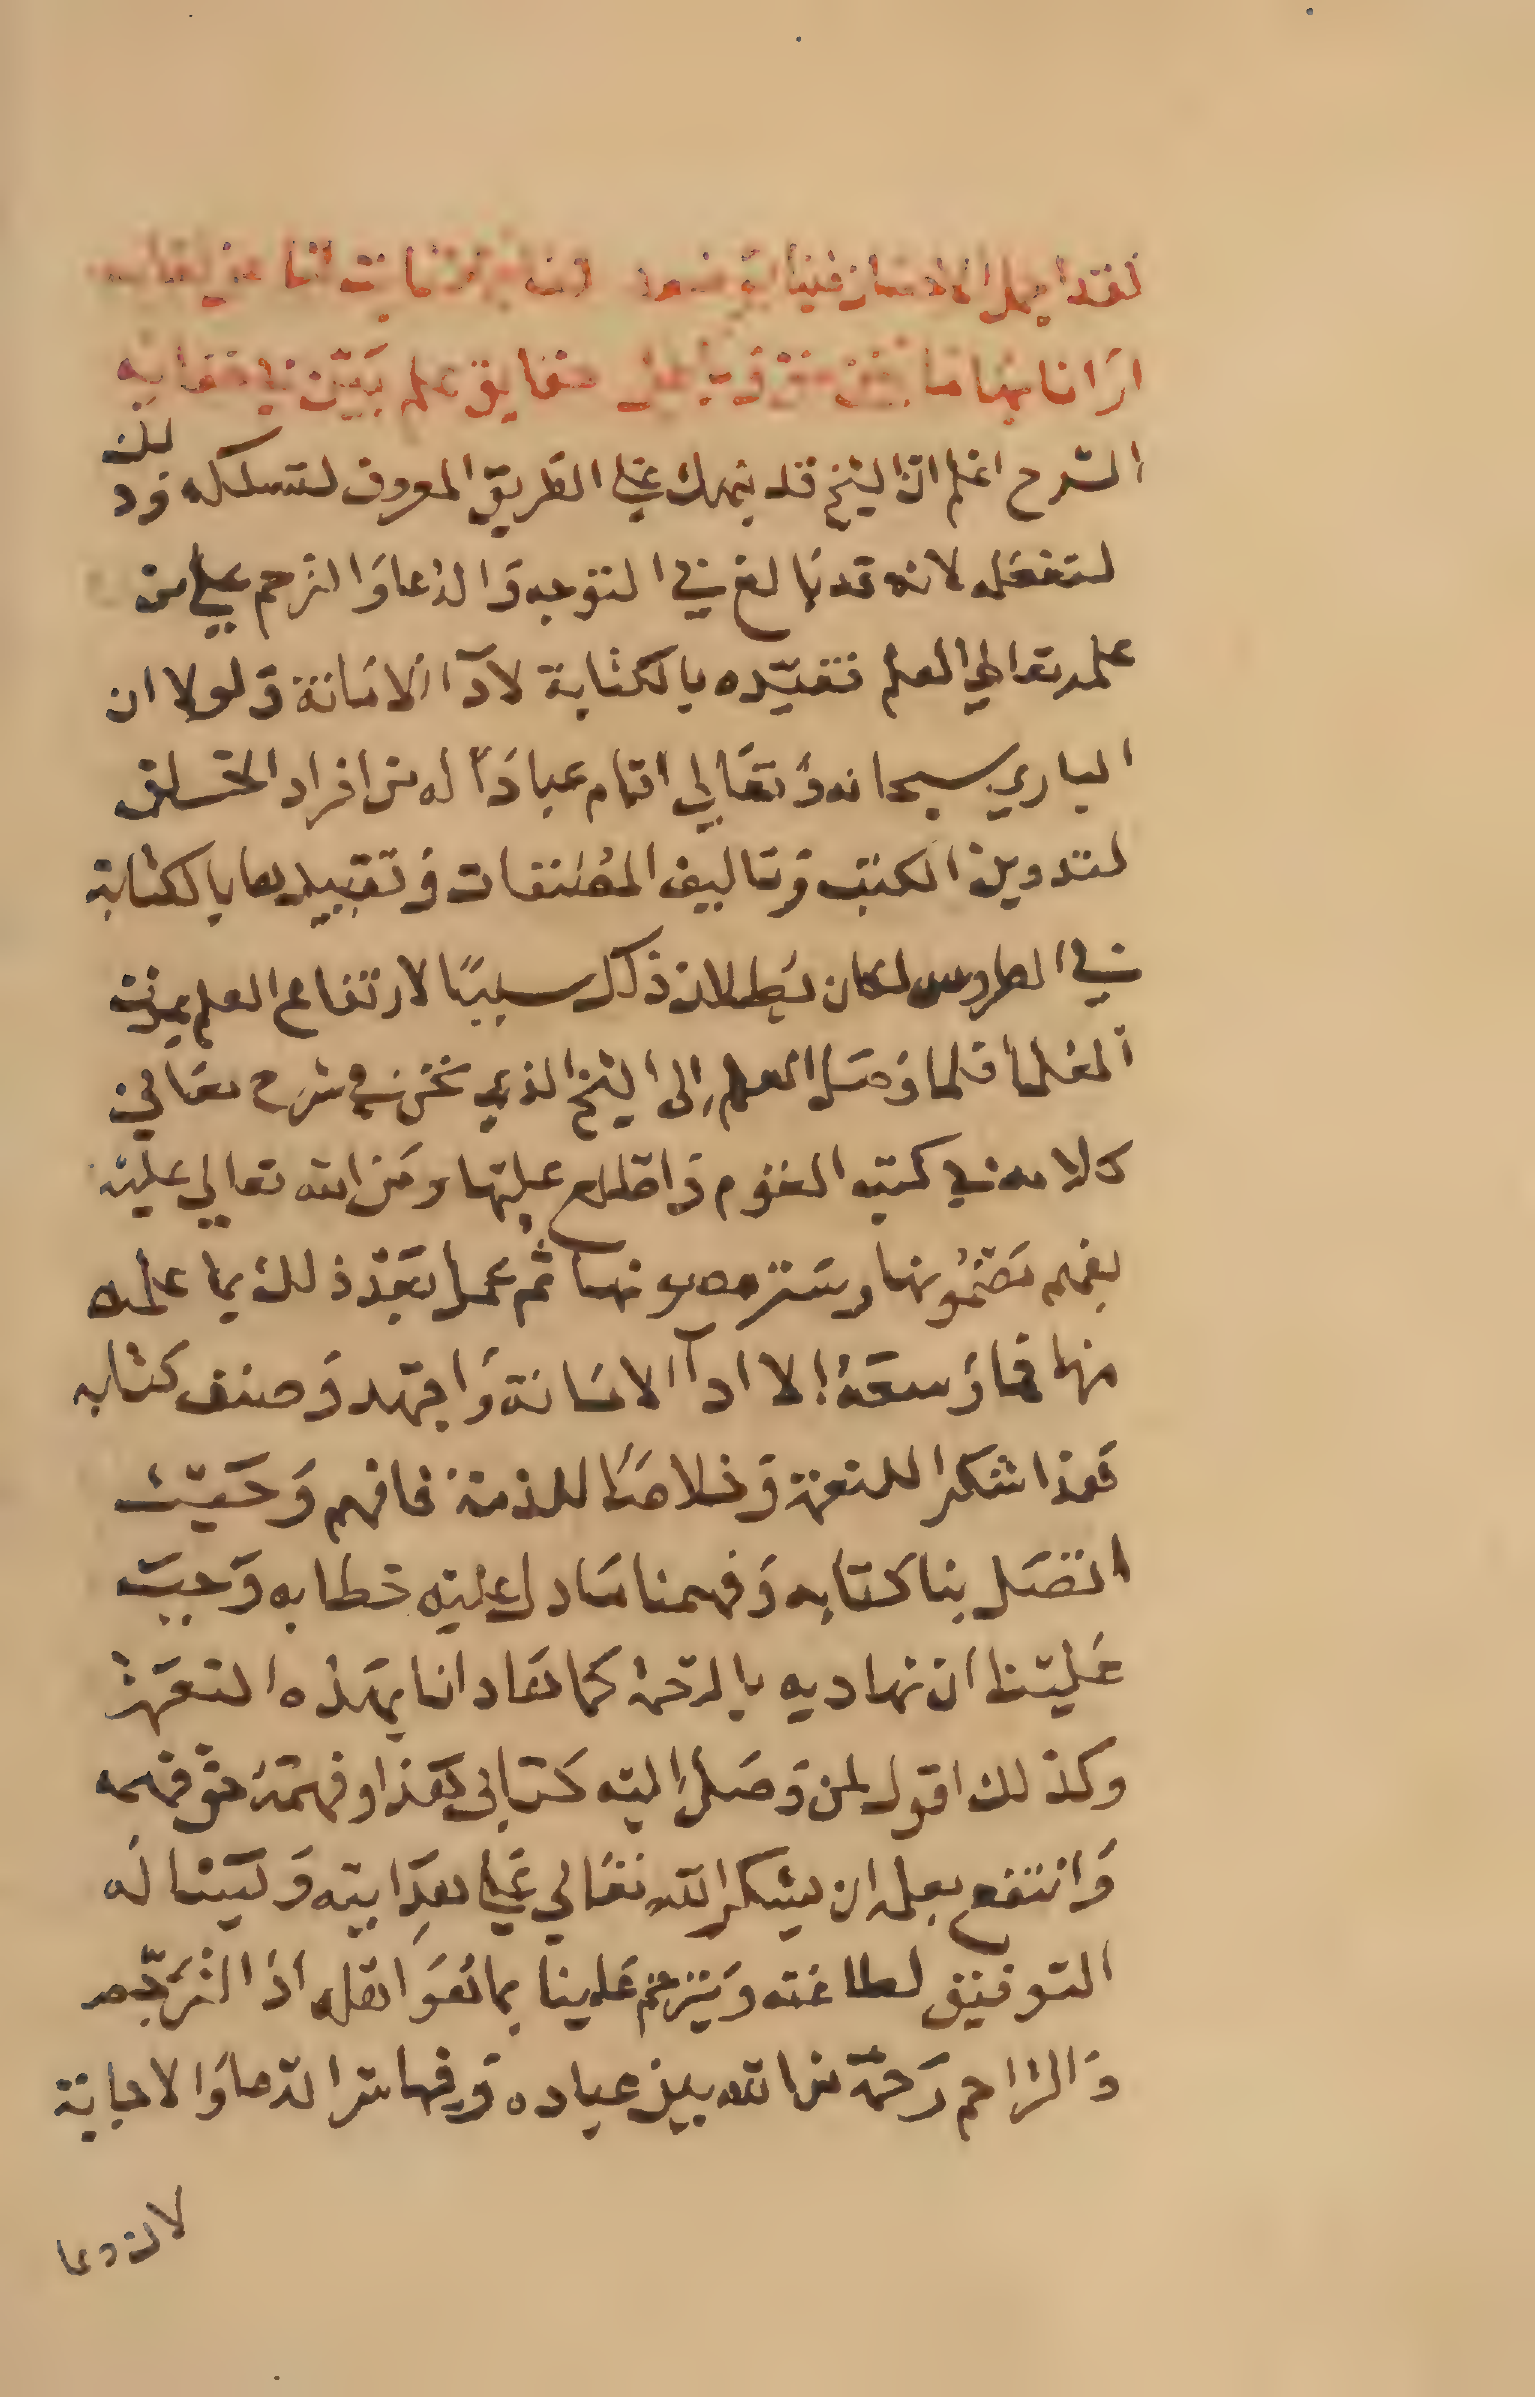 لقد اجمل الاحسان فينا
ارانا بها ما على حقايق علم بَيّن في خفايه
الشرح اعلم ان الشيخ قد نبهك على الطريق المعروف لتسلكه ودلك
لتفعله لانه قد بالغ في التوجه وَالدعا وَالترحم على من
علمه تعاطي العلم فقيّده بالكتابة لادآ الامانة وَلولا ان
الباري سبحانه وَتعَالي اقام عبادًا له من افراد الخلق
لتدوين الكتب وَتاليف المصَنفات وَتقييدها بالكتابة
في الطروس لكان بُطلان ذلك سببًا لارتفاع العلم بموت
العُلما فلما وَصَل العلم إلى الشيخ الذي نحن في شرح معَاني
كلامه في كتب القوم وَاطلع عليها ومَن الله تعالي عليه
بفهم مَضمُونها وسَتر مصونها ثم عمل بَعد ذلك بما علمه
منها فما وَسعَهُ إلا ادآ الامَانة وَاجتهد وَصنف كتابه
هَذا شكرا للنعمة وَخلاصًا للذمة فافهم وَحَيث
اتصَل بنا كتابه وَفهمنا مَا دل عليه خطابه وَجبَ
عَليَنا ان نهاديه بالرحمة كما هَادانا بهَذه النعَمة
وكذلك اقول لمن وَصَل اليه كتابي هَذا وفهمَهُ حق فهمه
وَانتفع بعلمه ان يشكر الله تعَالي عَلي هِدَايته وَيَسَاله
التوفيق لطاعَته وَيَترحم عَلينا بما هُوَ اهله اذ الترَحّم
وَالتراحم رَحمَة من الله بين عباده وَفيها سر الدعا وَالاجابة
لان دعا